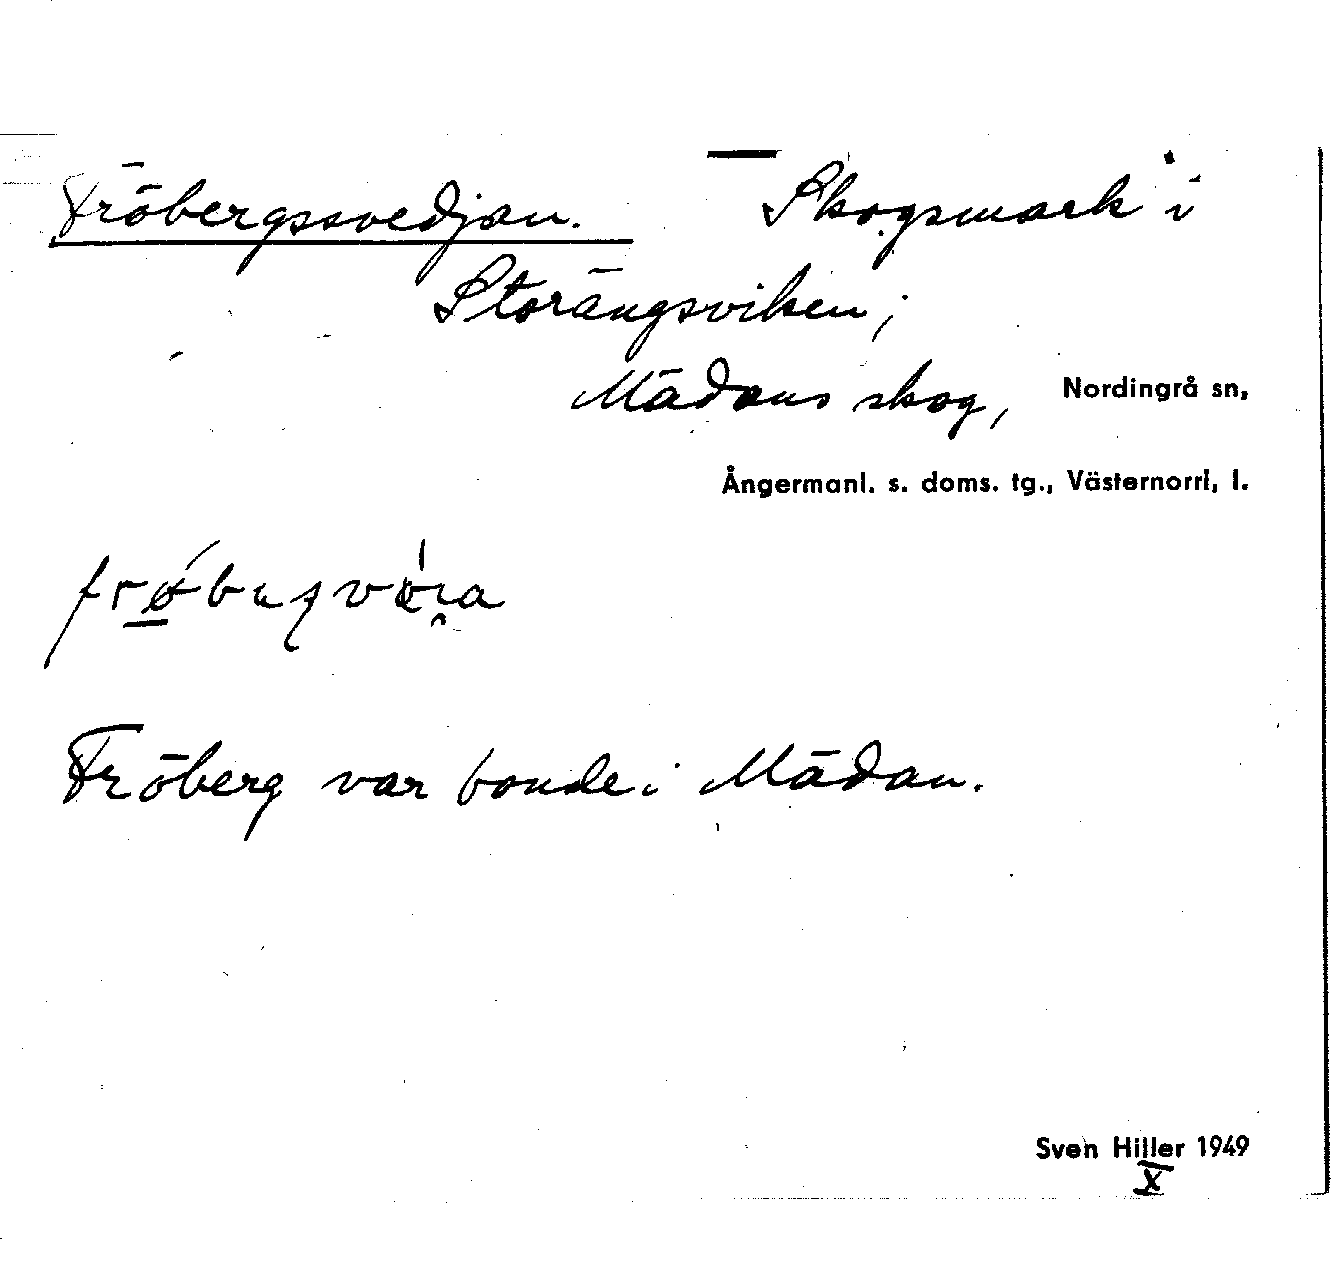 Fröbergssvedjan. Skogsmark i
Storängsviken,
Mädans skog, Nordingrå sn,
Ångermanl. s. doms. tg., Västernorrl, l.
Fröberg var bonde i Mädan.
Sven Hiller 1949
X